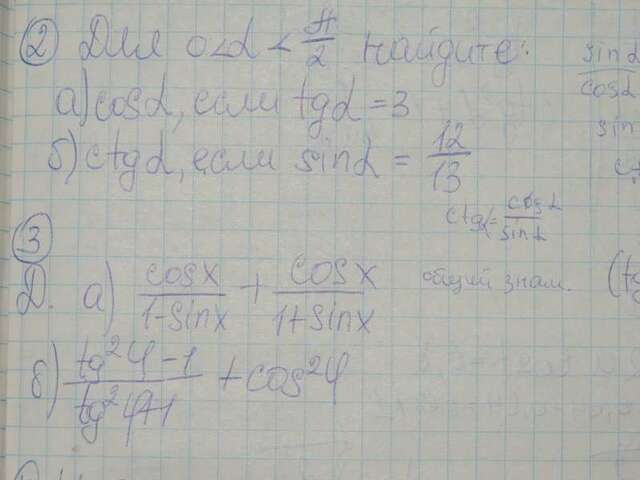 ② Для 0<α<π/2 найдите:
а) cosα, если tgα = 3
б) ctgα, если sinα = 12/13
sinα
cosα
sin
ctgα = cosα/sinα
③
Д. а) cosx/1-sinx + cosx/1+sinx
общий знам.
б) tg²φ-1/tg²φ+1 + cos²φ